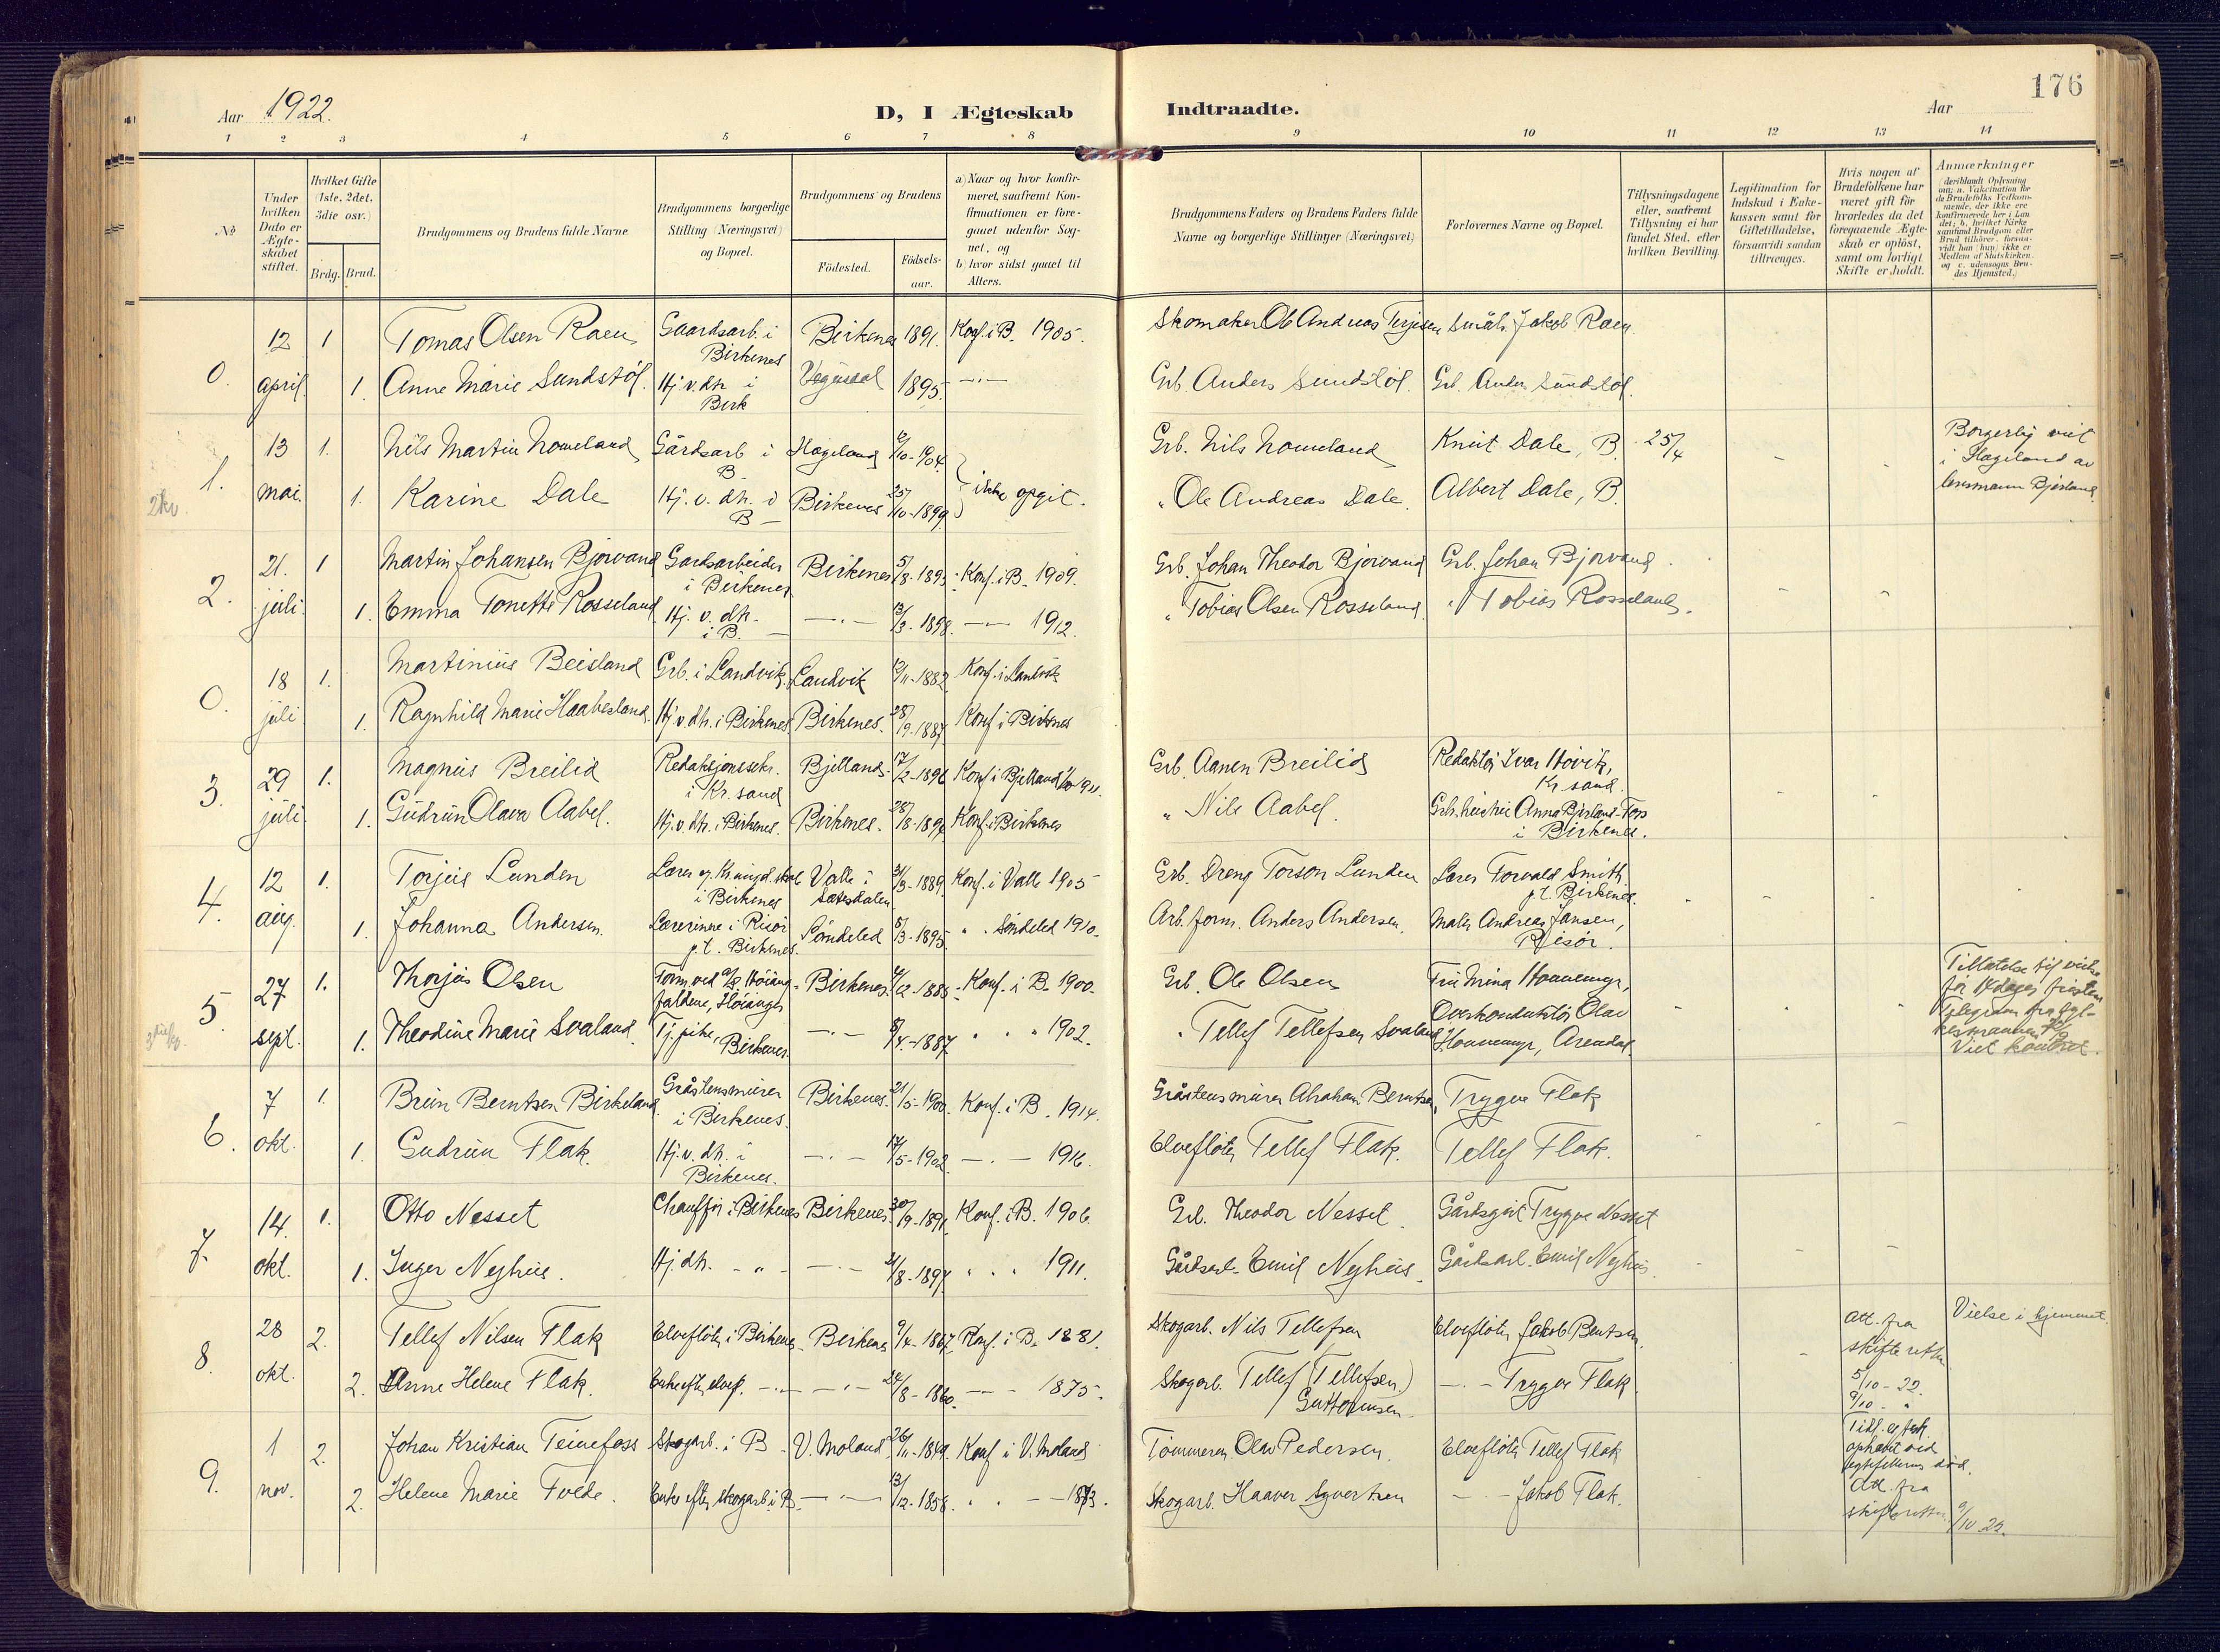 176
Aar 1922.
D, I Ægteskab Indtraadte.
Aar
1 2 3 4 5 6 7 8 9 10 11 12 13 14
No
Under hvilken Dato er Ægteskabet stiftet.
Hvilket Gifte (1ste, 2det, 3die osv.)
Brdg. Brud.
Brudgommens og Brudens fulde Navne
Brudgommens borgerlige Stilling (Næringsvei) og Bopæl.
Brudgommens og Brudens
Fødested.
Fødselsaar.
a) Naar og hvor konfirmeret, saafremt Konfirmationen er foregaaet udenfor Sognet, og
b) hvor sidst gaaet til Alters.
Brudgommens Faders og Brudens Faders fulde Navne og borgerlige Stillinger (Næringsvei)
Forlovernes Navne og Bopæl.
Tillysningsdagene eller, saafremt Tillysning ei har fundet Sted, efter hvilken Bevilling.
Legitimation for Indskud i Enkekassen samt for Giftetilladelse, forsaavidt saadan tiltrænges.
Hvis nogen af Brudefolkene har været gift før hvorledes da det foregaaende Ægteskab er opløst, samt om lovligt Skifte er holdt.
Anmærkninger
(deriblandt Oplysning om: a. Vakcination for de Brudefolks Vedkommende, der ikke ere konfirmerede her i Landet; b. hvilket Kirkesamfund Brudgom eller Brud tilhører, forsaavidt han (hun) ikke er Medlem af Statskirken, og c. udensogns Brudes Hjemsted.)
0. 12 1 Tomas Olsen Raen Gaardsarb. i Birkenes Birkenes 1891. Konf. i B. 1905. Skomaker Ole Andreas Terjesen Småbr. Jakob Raen
april. 1. Anne Marie Sundstøl. Hj. v. dtr. i Birk Vegusdal 1895 Grb. Anders Sundstøl. Grb. Anders Sundstøl.
1. 13 1. Nils Martin Nomeland Gårdsarb i B. Hægeland /10-1904 Grb. Nils Nomeland Knut Dale, B. 25/4 Borgerlig viet i Hægeland av lensmann Bjorland
2kv. mai. 1. Karine Dale Hj. v. dtr. i B Birkenes 25/10-1899 ikke opgit. " Ole Andreas Dale. Albert Dale, B.
2. 21. 1 Martin Johansen Bjorvand Gardsarbeider i Birkenes Birkenes 5/8-1893 Konf. i B. 1909. Grb. Johan Theodor Bjorvand Grb. Johan Bjorvand
juli. 1. Emma Tonette Rosseland Hj. v. dtr. i B. 13/3-1898. 1912. " Tobias Olsen Rosseland " Tobias Rosseland.
0. 18 1. Martinius Beisland Grb. i Landvik Landvik /11-1882 Konf. i Landvik
juli 1. Ragnhild Marie Haabesland. Hj v. dtr. i Birkenes Birkenes. 28/9-1887 Konf i Birkenes
3. 29 1. Magnus Breilid Redaksjonssekr. i Kr. sand Bjelland. 17/2-1896 Konf i Bjelland 1911. Grb. Aanen Breilid Redaktør Ivar Hovik, Kr. sand.
juli. 1. Gudrun Olava Aabel. Hj. v. dtr. i Birkenes. Birkenes. 28/8-1896 Konf. i Birkenes " Nils Aabel. Grb. hustru Anna Birkeland-Foss i Birkenes.
4. 12 1. Torjus Lunden Lærer v. Kr. ungd. skole i Birkenes Valle i Sætesdalen /3-1889. Konf. i Valle 1905 Grb. Dreng Torson Lunden Lærer Torvald Smith p.t. Birkenes.
aug. 1. Johanna Andersen. Lærerinne i Risør p.t. Birkenes. Søndeled /3-1895 " . Søndeled 1910. Arb. form. Anders Andersen. Maler Andreas Jansen, Risør.
5. 27 1. Thorjus Olsen Form. ved A/S Høiangfaldene, Høianger Birkenes /12-1885 Konf. i B. 1900. Grb. Ole Olsen Fru Mina Honnemyr,
sept. 1. Theodine Marie Svaland. Tj. pike, Birkenes. /4-1887 1902. " Tellef Tellefsen Svaland Overkonduktør Olav Honnemyr, Arendal.
6. 7 1. Brun Berntsen Birkeland Gråstensmurer i Birkenes. Birkenes. 21/5-1900. Konf. i B. 1914. Gråstensmurer Abraham Berntsen Trygve Flak
okt. 1. Gudrun Flak. Hj. v. dtr. i Birkenes. 14/5-1902. 1916. Elvefløter Tellef Flak. Tellef Flak.
7. 14. 1. Otto Nesset Chauffør i Birkenes Birkenes. 30/9-1891. Konf. i B. 1906. Grb. Theodor Nesset. Gårdsgut Trygve Nesset
okt. 1. Inger Neghus. Hj. dtr. /8-1897. 1911. Gårdsarb. Emil Neghus Gårdsarb. Emil Neghus.
8. 28 2. Tellef Nilsen Flak Elvefløter i Birkenes Birkenes 9/4-1867. Konf. i B. 1881. Skogarb. Nils Tellefsen Elvefløter Jakob Bentsen. Att. fra skifteretten Vielse i hjemmet.
okt. 2. Anne Helene Flak. Enke efter elvefl. 24/8-1860. 1875. Skogarb. Tellef (Tellefsen) Guttormsen. Trygve Flak 5/10-22. 9/10 - "
9. 1 2. Johan Kristian Teinefoss Skogarb. i B V. Moland 26/11-1849. Konf i V. Moland Tømmerm. Olav Pedersen. Elvefløter Tellef Flak Tidl. egtesk. ophævet ved egtefellernes død.
nov. 2. Helene Marie Tvede. Enke efter skogarb. i B. 13/12-1858. 1873. Skogarb. Haaver Syvertsen Jakob Flak. Att. fra skifteretten 9/10 22.